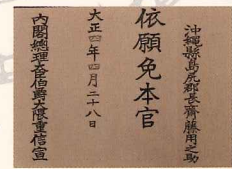 沖繩縣島尻郡長齋藤用之助
依願免本官
大正四年四月二十八日
內閣總理大臣伯爵大隈重信宣